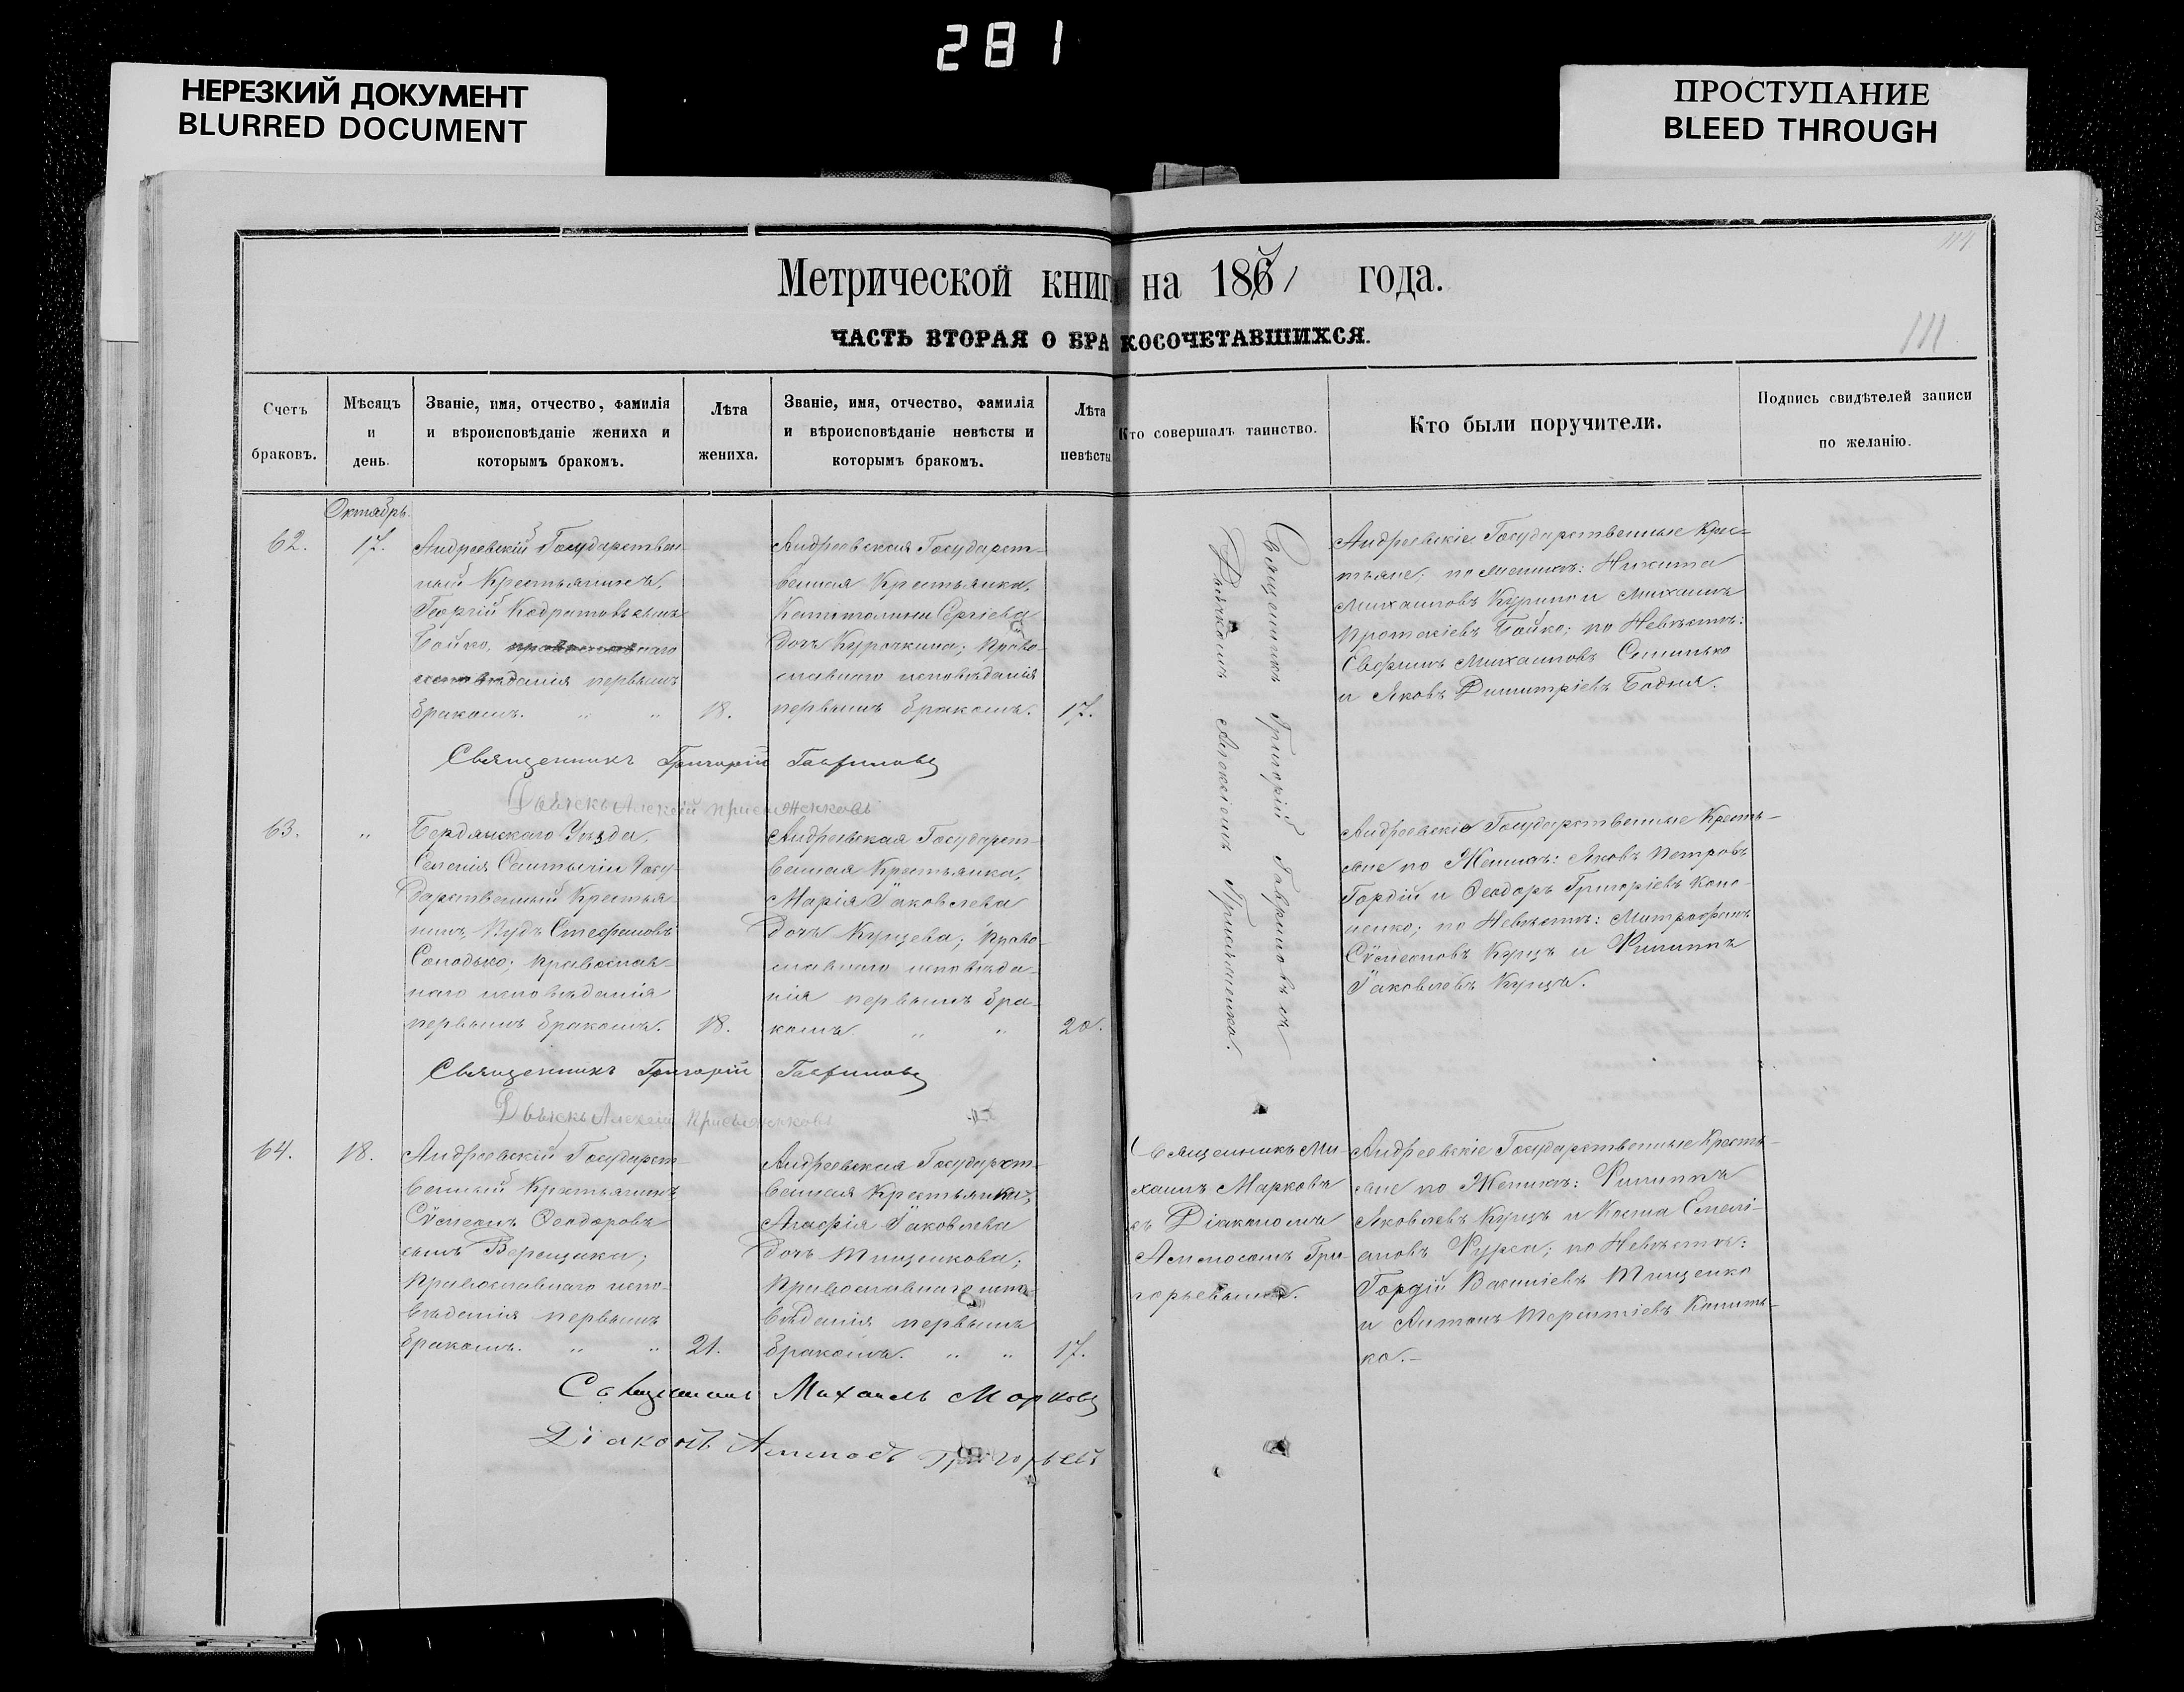 281
НЕРЕЗКИЙ ДОКУМЕНТ
BLURRED DOCUMENT
ПРОСТУПАНИЕ
BLEED THROUGH
Метрической книг на 1871 года.
111
ЧАСТЬ ВТОРАЯ О БРАКОСОЧЕТАВШИХСЯ.
Счетъ
браковъ.
Мѣсяцъ
и
день.
Званіе, имя, отчество, фамилія
и вѣроисповѣданіе жениха и
которымъ бракомъ.
Лѣта
жениха.
Званіе, имя, отчество, фамилія
и вѣроисповѣданіе невѣсты и
которымъ бракомъ.
Лѣта
невѣсты
Кто совершалъ таинство.
Кто были поручители.
Подпись свидѣтелей записи
по желанію.
Октябрь.
62.
17.
Андреевскій Государствен-
ный Крестьянинъ,
Георгій Кодратовъ сынъ
Бойко, православнаго
исповѣданія первымъ
бракомъ. " "
18.
Андреевская Государст-
венная Крестьянка,
Капитолина Сергіева
дочь Курочкина; Право-
славнаго исповѣданія
первымъ бракомъ.
17.
Священникъ Григорій Гавриловъ съ
Дьячкомъ Алексіемъ
Андреевскіе Государственные Крес-
тьяне; по женихѣ: Никита
Михаиловъ и Михаилъ
Бойко; по Невѣстѣ:
Михаиловъ
и Яковъ Димитріевъ Бодня.
Священникъ Григорій Гавриловъ
Дьячекъ Алексій
63.
"
Бердянскаго Уѣзда,
Селенія Госу-
дарственный Крестья-
нинъ, Стефановъ
Солодько; православ-
наго исповѣданія
первымъ бракомъ.
18.
Андреевская Государст-
венная Крестьянка,
Марія Іаковлева
дочь Купцева; Право-
славнаго исповѣда-
нія первымъ бра-
комъ " "
20.
Андреевскіе Государственные Кресть-
яне по Женихѣ: Яковъ Петровъ
Гордій и Ѳеодоръ Григоріевъ Коно-
ненко; по Невѣстѣ: Митрофанъ
Сѵмеоновъ Купцъ и Филиппъ
Іаковлевъ Купцъ.
Священникъ Григорій Гавриловъ
Дьячекъ Алексій
64.
18.
Андреевскій Государст-
венный Крестьянинъ
Сѵмеонъ Ѳеодоровъ
сынъ Верещака;
Православнаго испо-
вѣданія первымъ
бракомъ. " "
21.
Андреевская Государст-
венная Крестьянка,
Агафія Іаковлева
дочь Тищенкова;
Православнаго испо-
вѣданія первымъ
бракомъ. " "
17.
Священникъ Ми-
хаилъ Марковъ
съ Діакономъ
Амосомъ Гри-
горьевымъ.
Андреевскіе Государственные Кресть-
яне по Женихѣ: Филиппъ
Яковлевъ Купцъ и Косма Емелі-
ановъ Фурса; по Невѣстѣ:
Гордій Василіевъ Тищенко
и Антонъ Терентіевъ Копить-
ко.—
Священникъ Михаилъ Марковъ
Діаконъ Григорьевъ